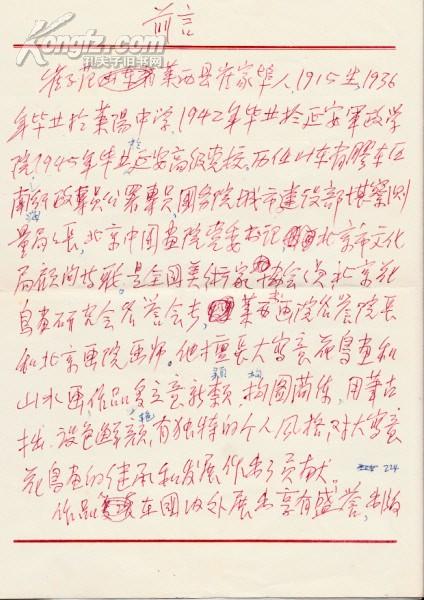 前言
Kongfz.com
孔夫子旧书网
崔子范 莱西县崔家埠人，1915生，1936
年毕业于莱陽中学，1942年毕业於延安軍政学
院，1945年毕业於延安高级党校。历任 山东省膠东区
南海 政專員公署專員，國务院城市建设部勘察测
量局局長，北京中國画院党委书记 北京市文化
局顧问等职。是全國美術家协会会员 北京花
鸟画研究会名誉会长，莱西画院名誉院長
和北京画院画师。他擅長大写意花鸟画和
山水画，作品立意新颖，构图简练，用筆古
拙，设色鲜艳，有独特的个人风格，对大写意
花鸟画的继承和发展作出了贡献。 224
作品 在國内外展出享有盛誉，出版